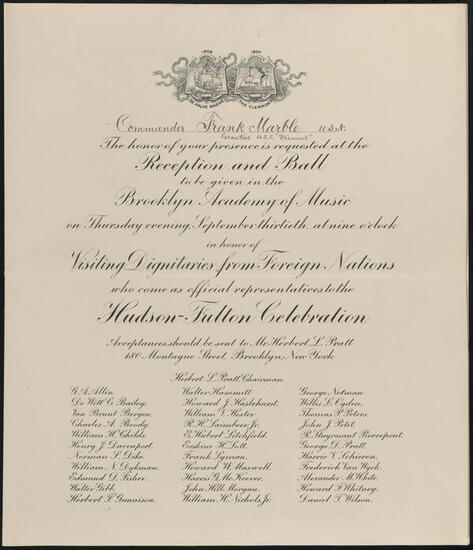 1609 1807
DE HALVE MAENE THE CLERMONT
Commander Frank Marble, U.S.N.
Executive U.S.S. "Vermont"
The honor of your presence is requested at the
Reception and Ball
to be given in the
Brooklyn Academy of Music
on Thursday evening, September thirtieth, at nine o'clock
in honor of
Visiting Dignitaries from Foreign Nations
who come as official representatives to the
Hudson-Fulton Celebration
Acceptances should be sent to Mr. Herbert L. Pratt
180 Montague Street, Brooklyn, New York
Herbert L. Pratt, Chairman.
G. A. Allin, Walter Hammitt, George Notman
De Witt C. Bailey, Howard J. Haslehurst, Willis L. Ogden,
Van Brunt Bergen, William V. Hester Thomas P. Peters,
Charles A. Boody, R. H. Laimbeer, Jr. John J. Petit,
William H. Childs, E. Hubert Litchfield, R. Stuyvesant Pierrepont,
Henry J. Davenport, Erskine H. Lott, George D. Pratt,
Norman S. Dike, Frank Lyman, Harrie V. Schieren,
William N. Dykman, Howard W. Maxwell, Frederick Van Wyck,
Edmund D. Fisher, Harris G. McKeever, Alexander M. White,
Walter Gibb, John Hill Morgan, Howard F. Whitney,
Herbert F. Gunnison, William H. Nichols, Jr. Daniel T. Wilson,